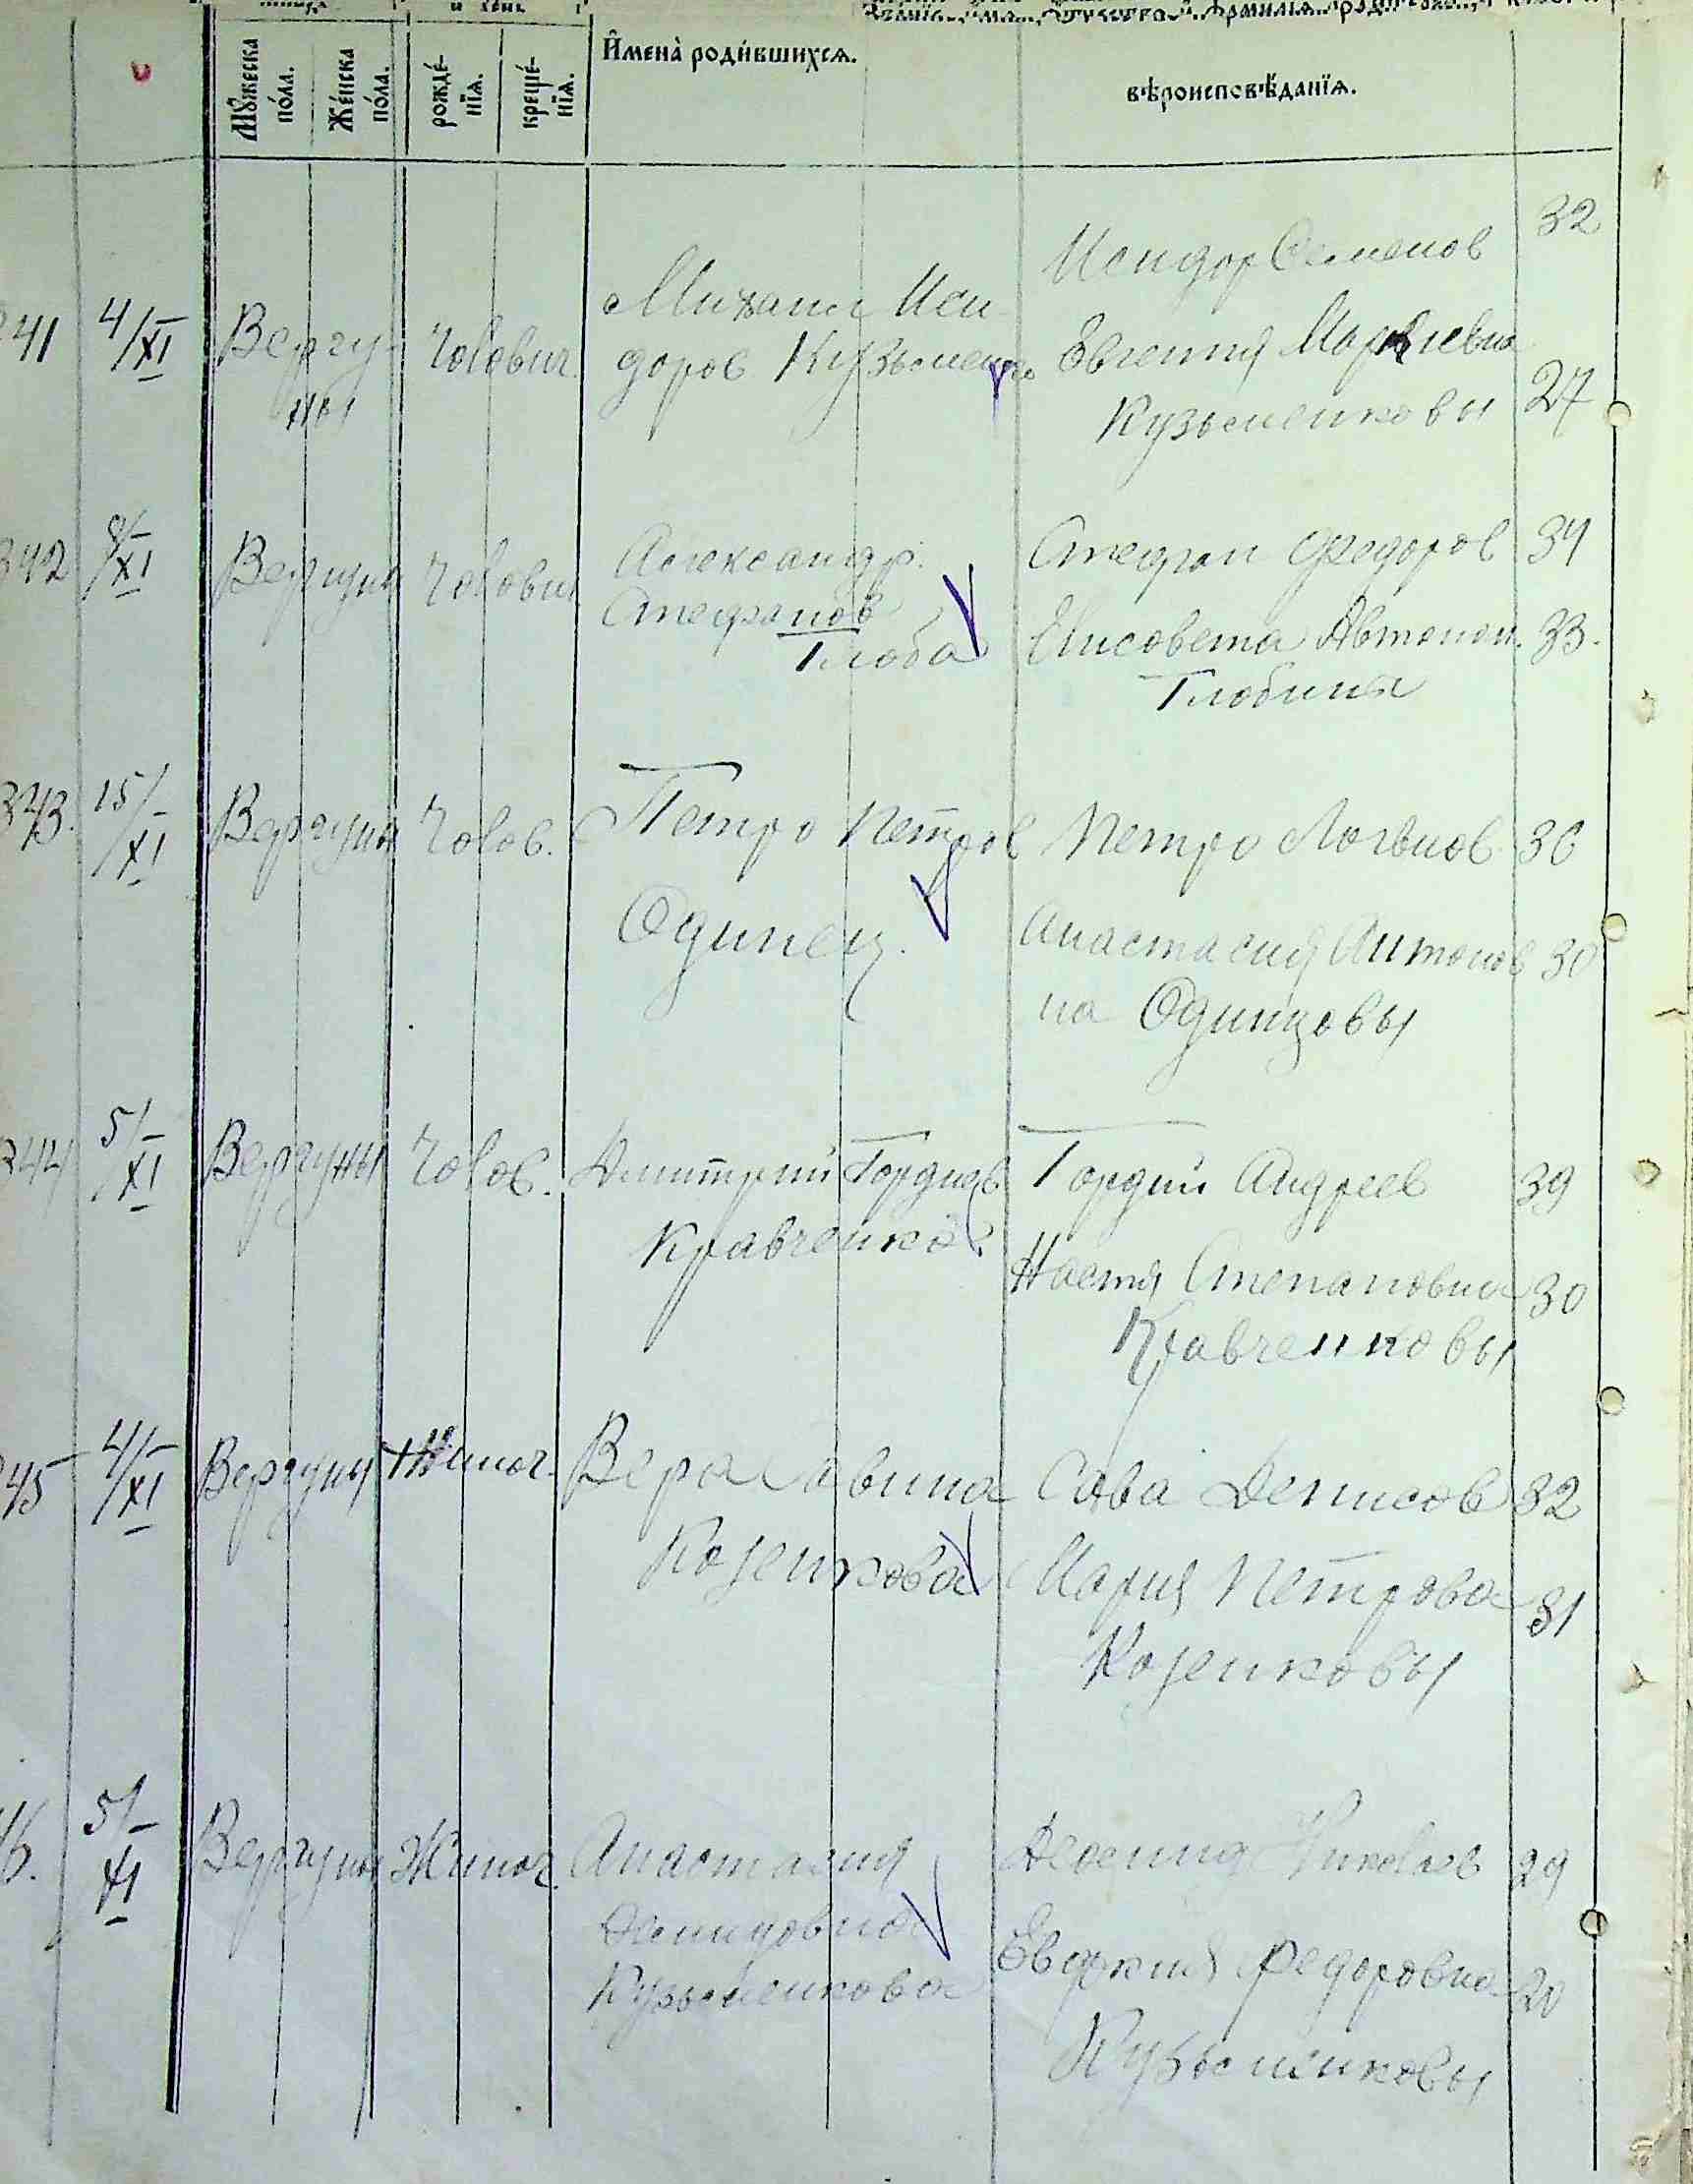 Мꙋжеска пола.
Женска пола.
рожде-
нїѧ.
креще-
нїѧ.
Имена родившихсѧ.
вѣроисповѣданїѧ.
41 4/XI Вергу- Чолович. Михаил Иси
ны доров Кузьменко
Исидор Семенов 32
Евгения
Кузьменковы 27
342 8/XI Вергуны Чолович Александр.
Стефанов
Глоба
Стефан Федоров 34
Елисовета Автоном. 33.
Глобины
343. 15/XI Вергуны Чолов. Петро Петров
Одинец.
Петро Логвинов 36
Анастасия Антонов 30
на Одинцовы
344 5/XI Вергуны Чолов. Дмитрий Гордиев
Кравченко.
Гордий Андреев 39
Настя Степановна 30
Кравченковы
345 4/XI Вергуны Жіноч. Вера Савина
Козенкова
Сава Денисов 32
Мария Петрова 31
Козенковы
46. 5/XI Вергуны Жіноч. Анастасия
Кузьменкова
Николаев 29
Евдокия Федоровна 20
Кузьменковы